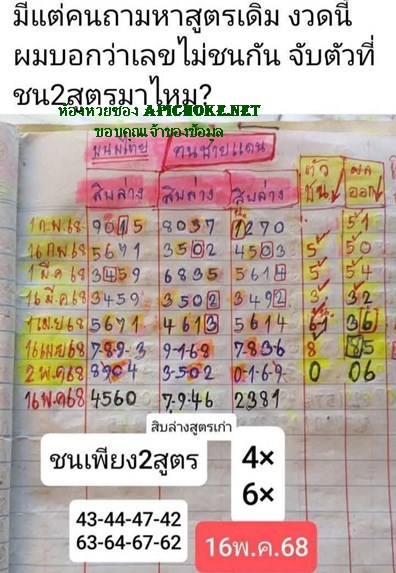 มีแต่คนถามหาสูตรเดิม งวดนี้
ผมบอกว่าเลขไม่ชนกัน จับตัวที่
ชน2สูตรมาไหม?
ห้องหวยซอง APICHOKE.NET
ขอบคุณเจ้าของข้อมูล
คนชายแดน
ตัว ผล
ชน ออก
สิบล่าง สิบล่าง สิบล่าง
1 ก.พ.68 9015 8037 1270 51
16 ก.พ.68 5671 3502 4503 5 50
1 มี.ค 68 3459 6835 5614 5 54
16 มี.ค 68 3459 3502 3492 3 32
1 เม.ย 68 5671 4613 5614 61 36
16 เม.ย 68 7-8-9-3 9-1-6-8 7-8-3-6 8 85
2 พ.ค 68 8904 3-502 0-1-6-9 0 06
16 พ.ค 68 4560 7-9-46 2381
สิบล่างสูตรเก่า
ชนเพียง2สูตร
4×
6×
43-44-47-42
63-64-67-62
16พ.ค.68